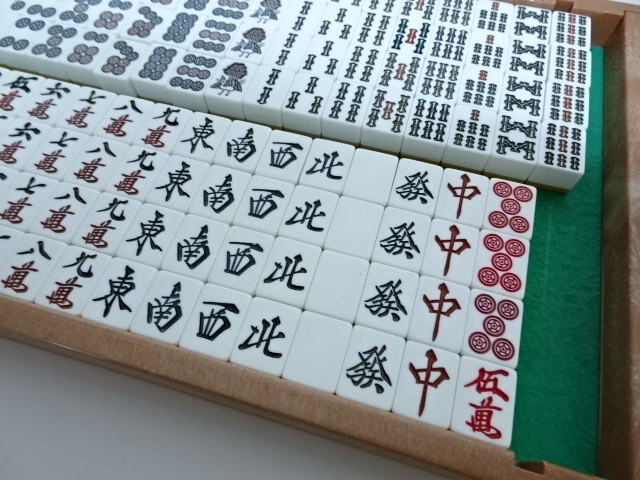 伍 六 七 八 九 東 南 西 北 發 中
萬 萬 萬 萬 萬
六 七 八 九 東 南 西 北 發 中
萬 萬 萬 萬
七 八 九 東 南 西 北 發 中
萬 萬 萬
八 九 東 南 西 北 發 中 伍萬
萬 萬